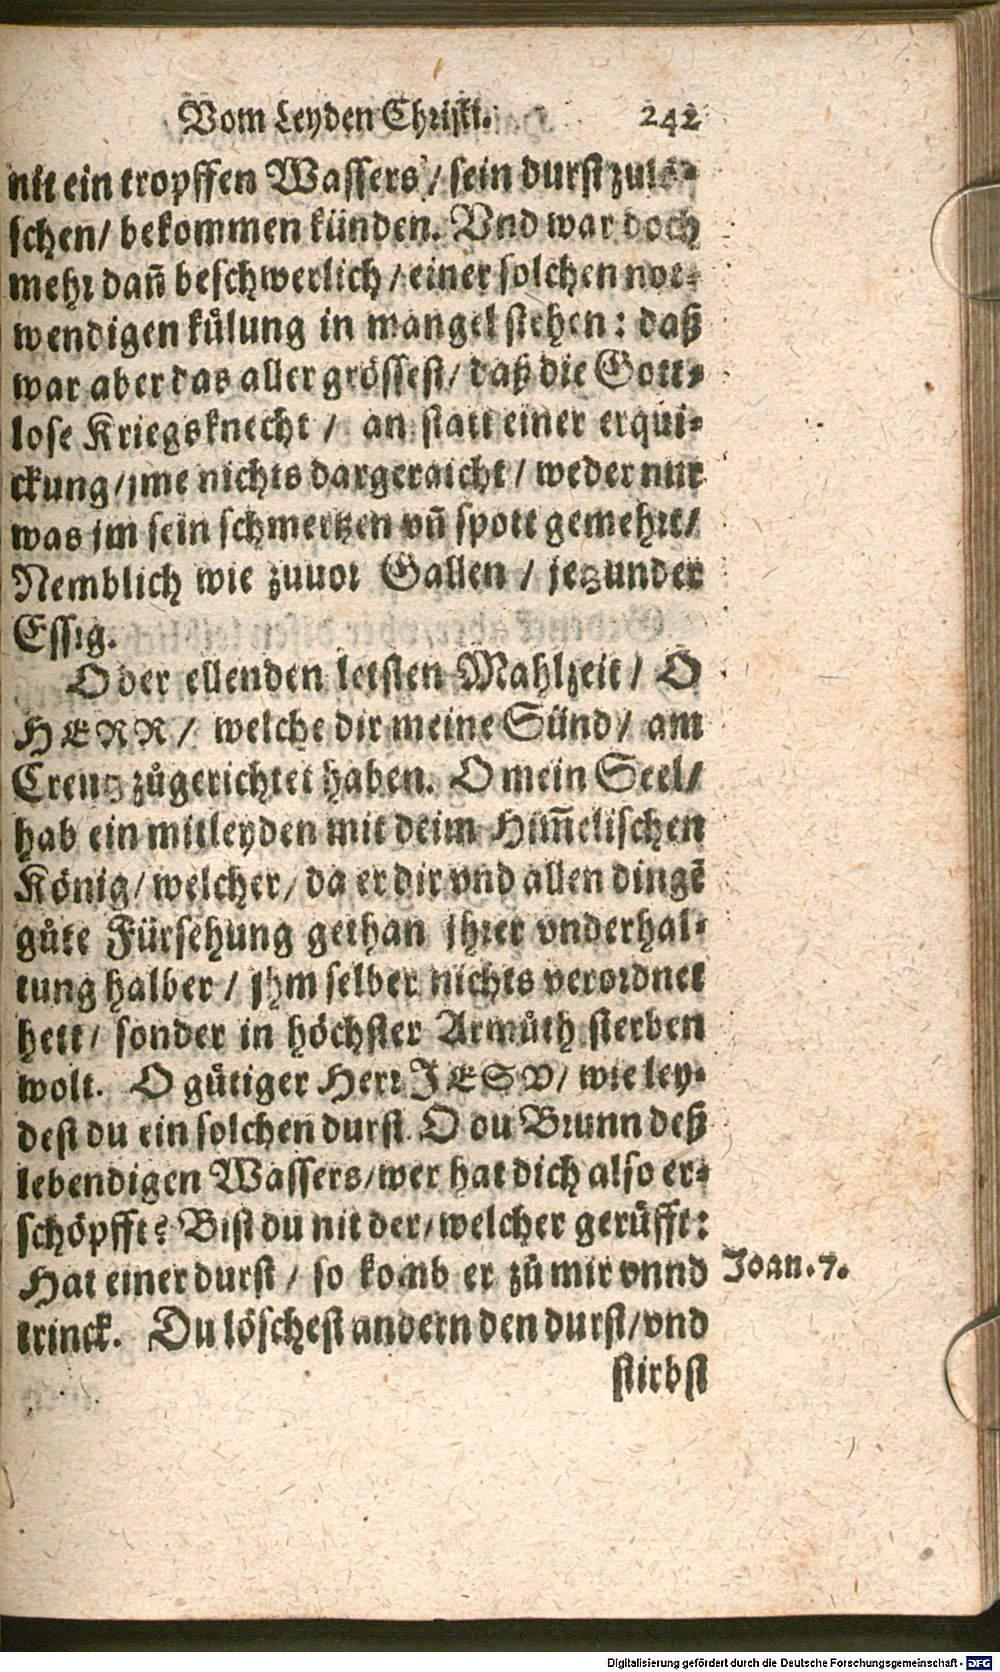 Vom Leyden Christi. 242
nit ein tropffen Wassers / sein durst zulö-
schen / bekommen künden. Vnd war doch
mehr dañ beschwerlich / einer solchen not-
wendigen külung in mangel stehen: daß
war aber das aller grössest / daß die Gott-
lose Kriegsknecht / an statt einer erqui-
ckung / jme nichts dargeraicht / weder nur
was jm sein schmertzen vñ spott gemehrt /
Nemblich wie zuuor Gallen / jetzunder
Essig.
O der ellenden letsten Mahlzeit / O
HERR / welche dir meine Sünd / am
Creutz zůgerichtet haben. O mein Seel /
hab ein mitleyden mit deim Him̃elischen
König / welcher / da er dir vnd allen dingẽ
gůte Fürsehung gethan jhrer vnderhal-
tung halber / jhm selber nichts verordnet
hett / sonder in höchster Armůth sterben
wolt. O gütiger Herr JESV / wie ley-
dest du ein solchen durst. O du Brunn deß
lebendigen Wassers / wer hat dich also er-
schöpfft? Bist du nit der / welcher gerůfft:
Hat einer durst / so komb er zů mir vnnd
trinck. Du löschest andern den durst / vnd
Joan. 7.
stirbst
Digitalisierung gefördert durch die Deutsche Forschungsgemeinschaft - DFG